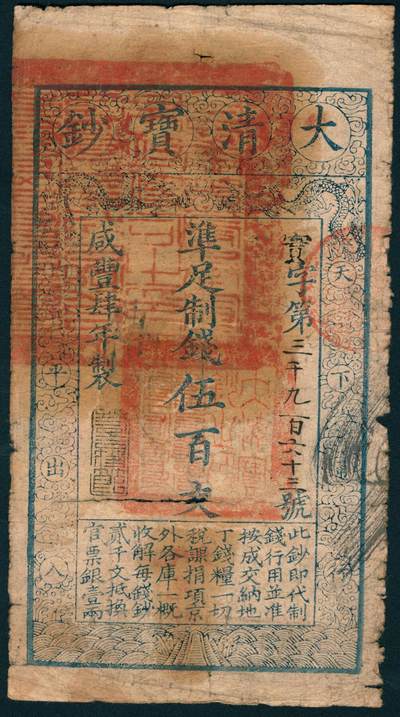 大清寶鈔
天下
平
出入
寶字第三千九百六十三號
準足制錢伍百文
咸豐肆年製
此鈔即代制
錢行用並准
按成交納地
丁錢糧一切
稅課捐項京
外各庫一概
收解每錢鈔
貳千文抵換
官票銀壹兩